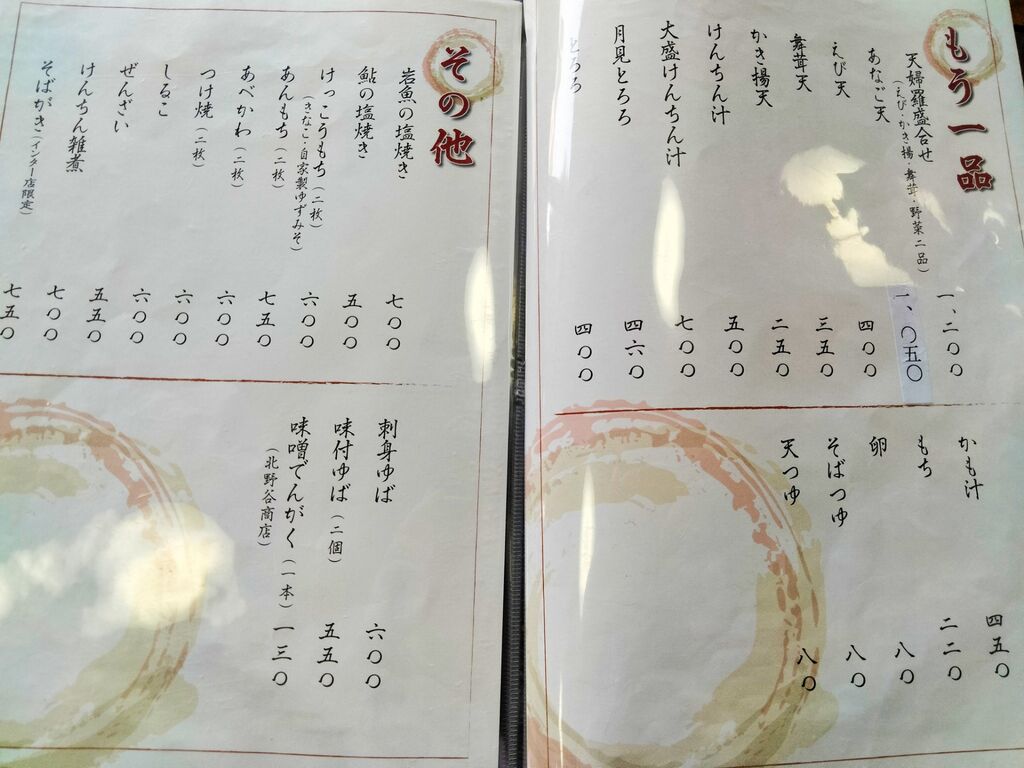 もう一品
天婦羅盛合せ 一、二〇〇
(えび・かき揚 舞茸・野菜二品)
あなご天 一、〇五〇
えび天 四〇〇
舞茸天 三五〇
かき揚天 二五〇
けんちん汁 五〇〇
大盛けんちん汁 七〇〇
月見とろろ 四六〇
とろろ 四〇〇
かも汁 四五〇
もち 二二〇
卵 八〇
そばつゆ 八〇
天つゆ 八〇
その他
岩魚の塩焼き 七〇〇
鮎の塩焼き 五〇〇
けっこうもち(二枚) 六〇〇
(きなこ・自家製ゆずみそ)
あんもち(二枚) 七五〇
あべかわ(二枚) 六〇〇
つけ焼(二枚) 六〇〇
しるこ 六〇〇
ぜんざい 五五〇
けんちん雑煮 七〇〇
そばがき(インター店限定) 七五〇
刺身ゆば 六〇〇
味付ゆば(二個) 五五〇
味噌でんがく(一本) 一三〇
(北野谷商店)